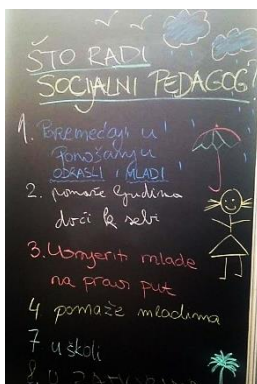 ŠTO RADI
SOCIJALNI PEDAGOG?
1. Poremećaji u
Ponošanju
ODRASLI I MLADI
2. pomaže ljudima
doći k sebi
3. Usmjeriti mlade
na pravi put
4 pomaže mladima
7 u školi
8 U